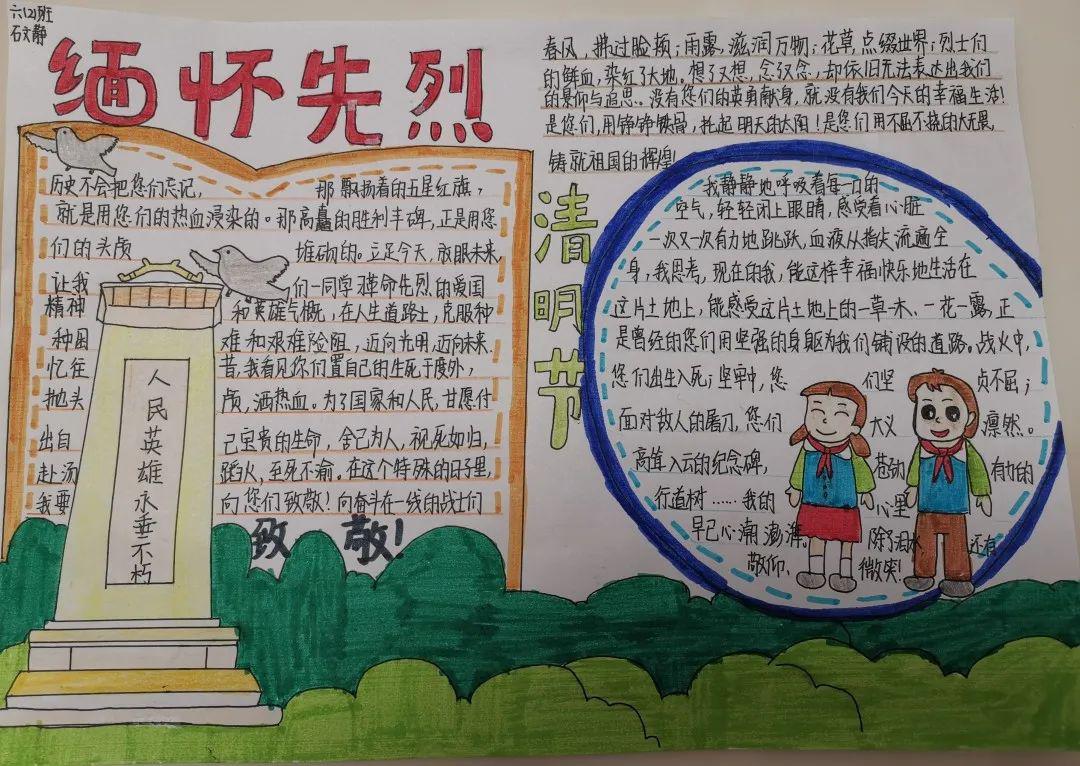 六(2)班
石文静
缅怀先烈
春风，拂过脸颊；雨露，滋润万物；花草，点缀世界；烈士们
的鲜血，染红了大地。想了又想，念了又念，却依旧无法表达出我们
的景仰与追思。没有您们的英勇献身，就没有我们今天的幸福生活！
是您们，用铮铮铁骨，托起明天的太阳！是您们用不屈不挠的大无畏，
铸就祖国的辉煌！
历史不会把您们忘记，那飘扬着的五星红旗，
就是用您们的热血浸染的。那高矗的胜利丰碑，正是用您
们的头颅堆砌的。立足今天，放眼未来，
让我们一同学革命先烈的爱国
精神和英雄气概，在人生道路上，克服种
种困难和艰难险阻，迈向光明，迈向未来，
忆往昔，我看见你们置自己的生死于度外，
抛头颅，洒热血。为了国家和人民，甘愿付
出自己宝贵的生命，舍己为人，视死如归，
赴汤蹈火，至死不渝。在这个特殊的日子里，
我要向您们致敬！向奋斗在一线的战士们
致敬！
人民英雄永垂不朽
清明节
我静静地呼吸着每一口的
空气，轻轻闭上眼睛，感觉着心脏
一次又一次有力地跳跃，血液从指尖流遍全
身，我思考，现在的我，能这样幸福快乐地生活在
这片土地上，能感受这片土地上的一草一木、一花一露，正
是曾经的您们用坚强的身躯为我们铺设的道路。战火中，
您们出生入死；坚牢中，您们坚贞不屈；
面对敌人的屠刀，您们大义凛然。
高耸入云的纪念碑，苍劲有力的
行道树……我的心里
早已心潮澎湃，除了泪水还有
敬仰、微笑！